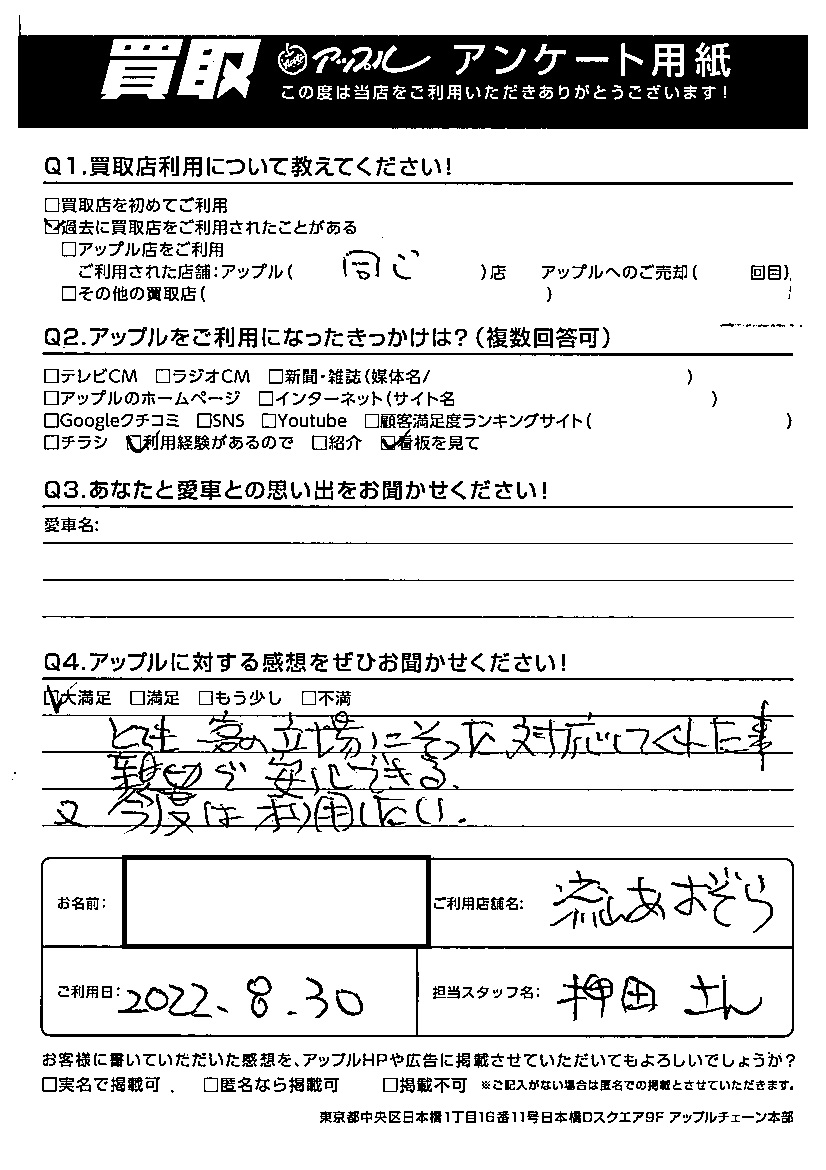 買取 アップル アンケート用紙
この度は当店をご利用いただきありがとうございます!
Q1.買取店利用について教えてください!
□買取店を初めてご利用
☑過去に買取店をご利用されたことがある
□アップル店をご利用
ご利用された店舗:アップル( 同じ )店 アップルへのご売却( 回目)
□その他の買取店( )
Q2.アップルをご利用になったきっかけは?(複数回答可)
□テレビCM □ラジオCM □新聞・雑誌(媒体名/ )
□アップルのホームページ □インターネット(サイト名 )
□Googleクチコミ □SNS □Youtube □顧客満足度ランキングサイト( )
□チラシ ☑利用経験があるので □紹介 ☑看板を見て
Q3.あなたと愛車との思い出をお聞かせください!
愛車名:
Q4.アップルに対する感想をぜひお聞かせください!
☑大満足 □満足 □もう少し □不満
とても 客の立場にそった対応してくれた事
親切で安心できる.
又 今度は利用したい.
お名前: ご利用店舗名: 流山あおぞら
ご利用日: 2022.8.30 担当スタッフ名: 押田 さん
お客様に書いていただいた感想を、アップルHPや広告に掲載させていただいてもよろしいでしょうか?
□実名で掲載可 . □匿名なら掲載可 □掲載不可 ※ご記入がない場合は匿名での掲載とさせていただきます。
東京都中央区日本橋1丁目16番11号日本橋Dスクエア9F アップルチェーン本部